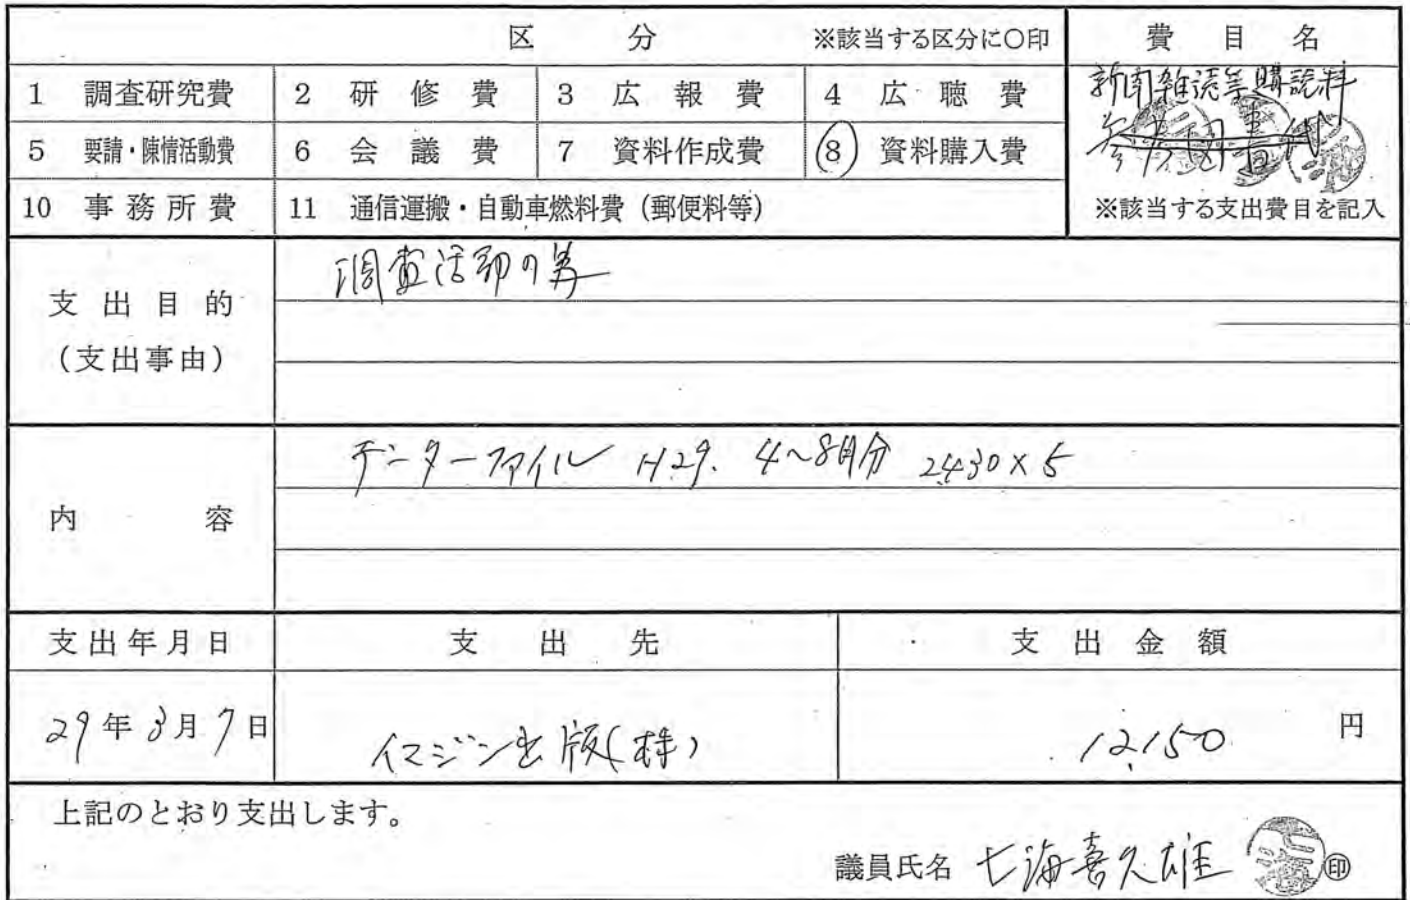 区 分 ※該当する区分に〇印 費目名
1 調査研究費 2 研修費 3 広報費 4 広聴費 新聞雑誌等購読料
5 要請・陳情活動費 6 会議費 7 資料作成費 8 資料購入費 参考図書代
10 事務所費 11 通信運搬・自動車燃料費（郵便料等） ※該当する支出費目を記入
支出目的
(支出事由)
調査活動の為
内容
データーファイル H29. 4~8月分 2430×5
支出年月日 支出先 支出金額
29年3月7日 イマジン出版(株) 12,150 円
上記のとおり支出します。
議員氏名 七海喜久雄 印